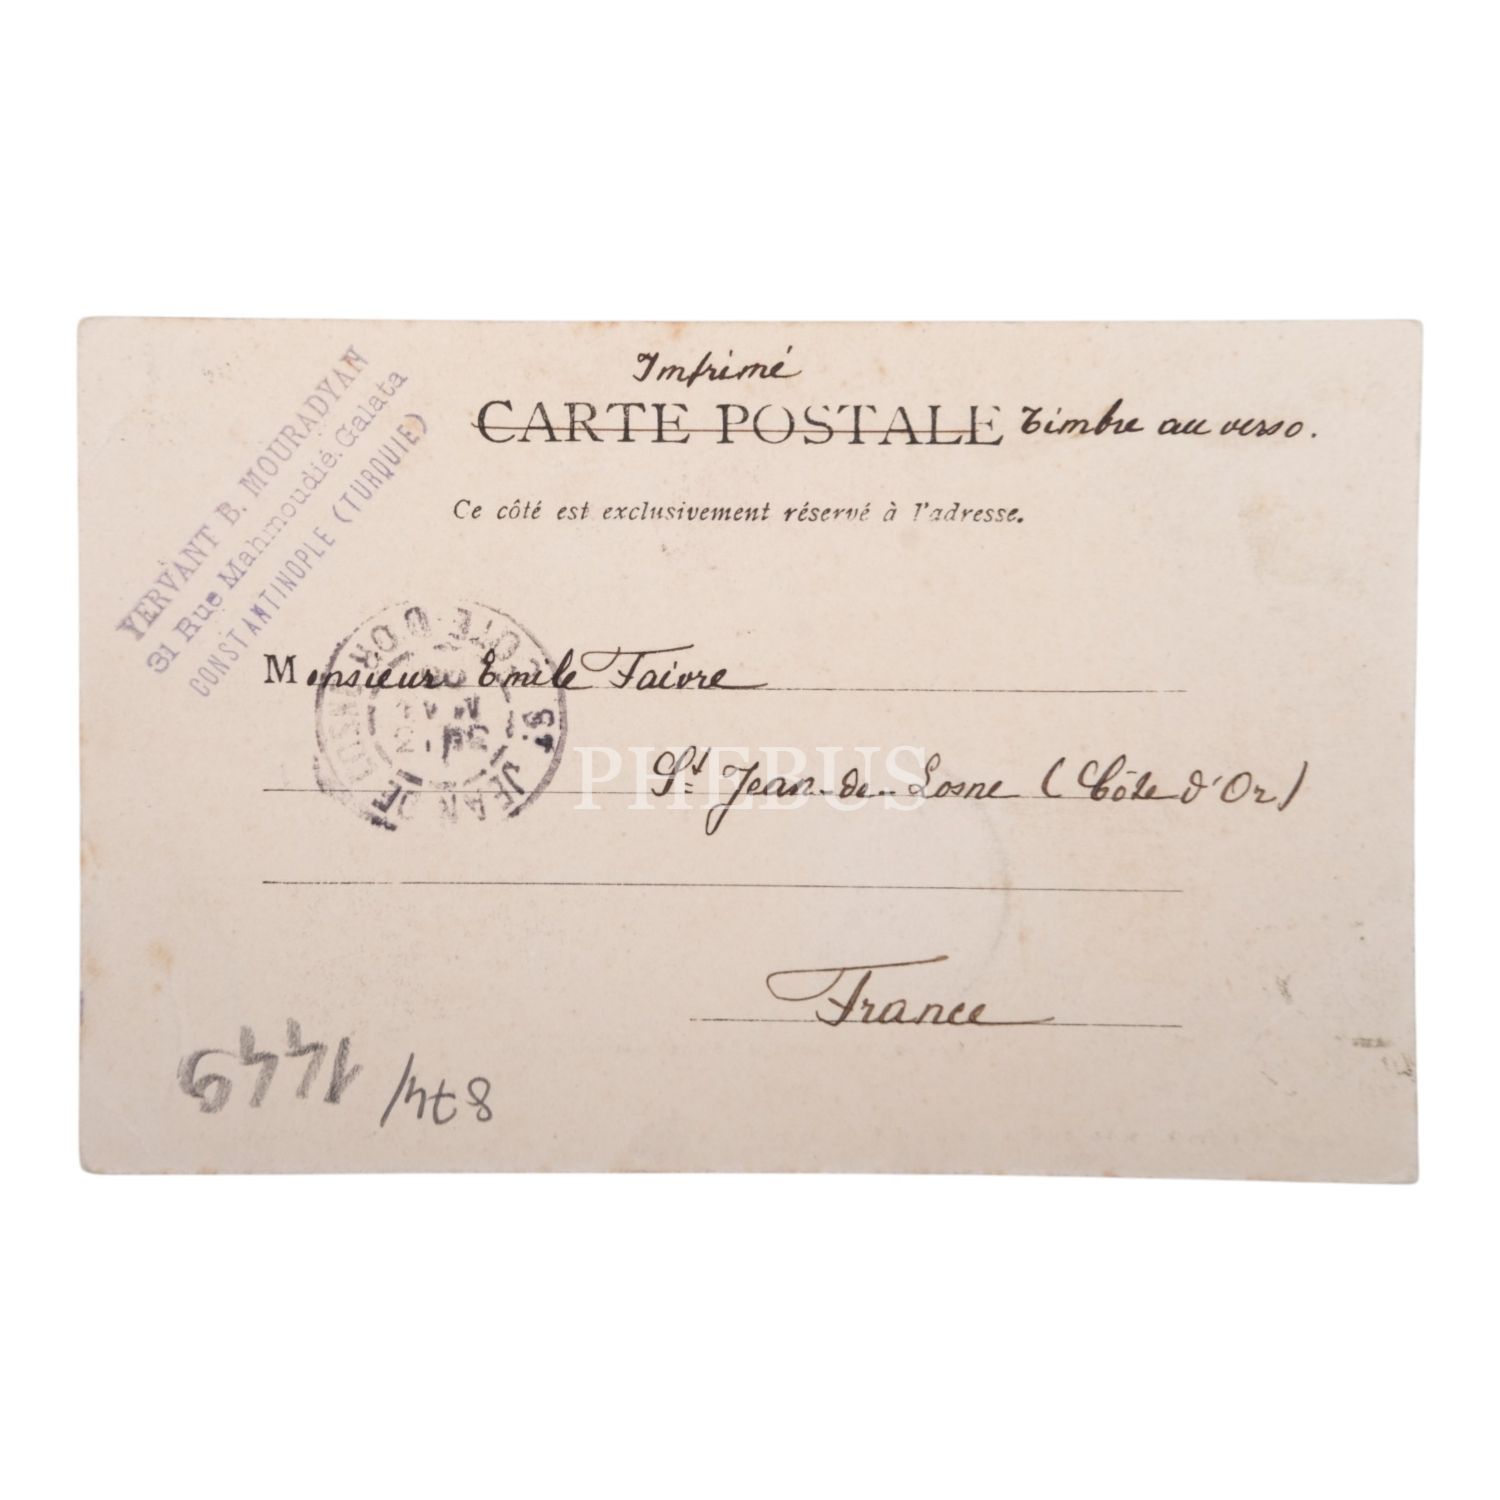 YERVANT B. MOURADYAN
31 Rue Mahmoudié. Galata
CONSTANTINOPLE (TURQUIE)
Imprimé
CARTE POSTALE Timbre au verso.
Ce côté est exclusivement réservé à l'adresse.
Monsieur Emile Faivre
St Jean-de-Losne (Côte d'Or)
France
ST JEAN DE LOSNE CÔTE-D'OR
PHEBUS
1449
874/